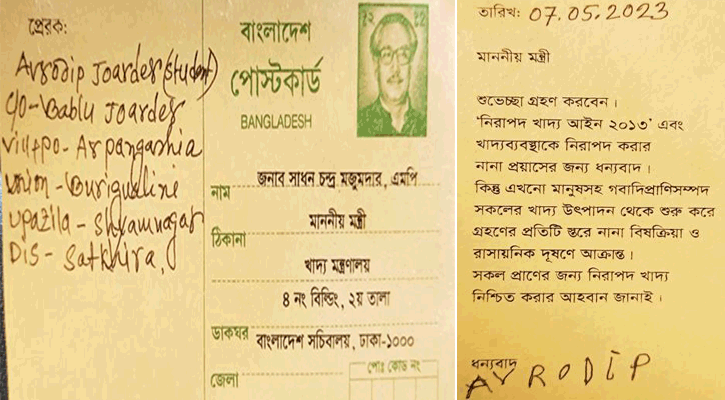 প্রেরক:
Avrodip Joarder (Student)
C/O-Bablu Joarder
Vill+po- Arpangashia
Union -Burigoalini
Upazila - Shyamnagar
Dis- Satkhira,
বাংলাদেশ
পোস্টকার্ড
BANGLADESH
নাম জনাব সাধন চন্দ্র মজুমদার, এমপি
মাননীয় মন্ত্রী
ঠিকানা
খাদ্য মন্ত্রণালয়
৪ নং বিল্ডিং, ২য় তালা
ডাকঘর বাংলাদেশ সচিবালয়, ঢাকা-১০০০
পোঃ কোড নং
জেলা
তারিখ: 07.05.2023
মাননীয় মন্ত্রী
শুভেচ্ছা গ্রহণ করবেন।
'নিরাপদ খাদ্য আইন ২০১৩' এবং
খাদ্যব্যবস্থাকে নিরাপদ করার
নানা প্রয়াসের জন্য ধন্যবাদ।
কিন্তু এখনো মানুষসহ গবাদিপ্রাণিসম্পদ
সকলের খাদ্য উৎপাদন থেকে শুরু করে
গ্রহণের প্রতিটি স্তরে নানা বিষক্রিয়া ও
রাসায়নিক দূষণে আক্রান্ত।
সকল প্রাণের জন্য নিরাপদ খাদ্য
নিশ্চিত করার আহবান জানাই।
ধন্যবাদ
AVRODIP